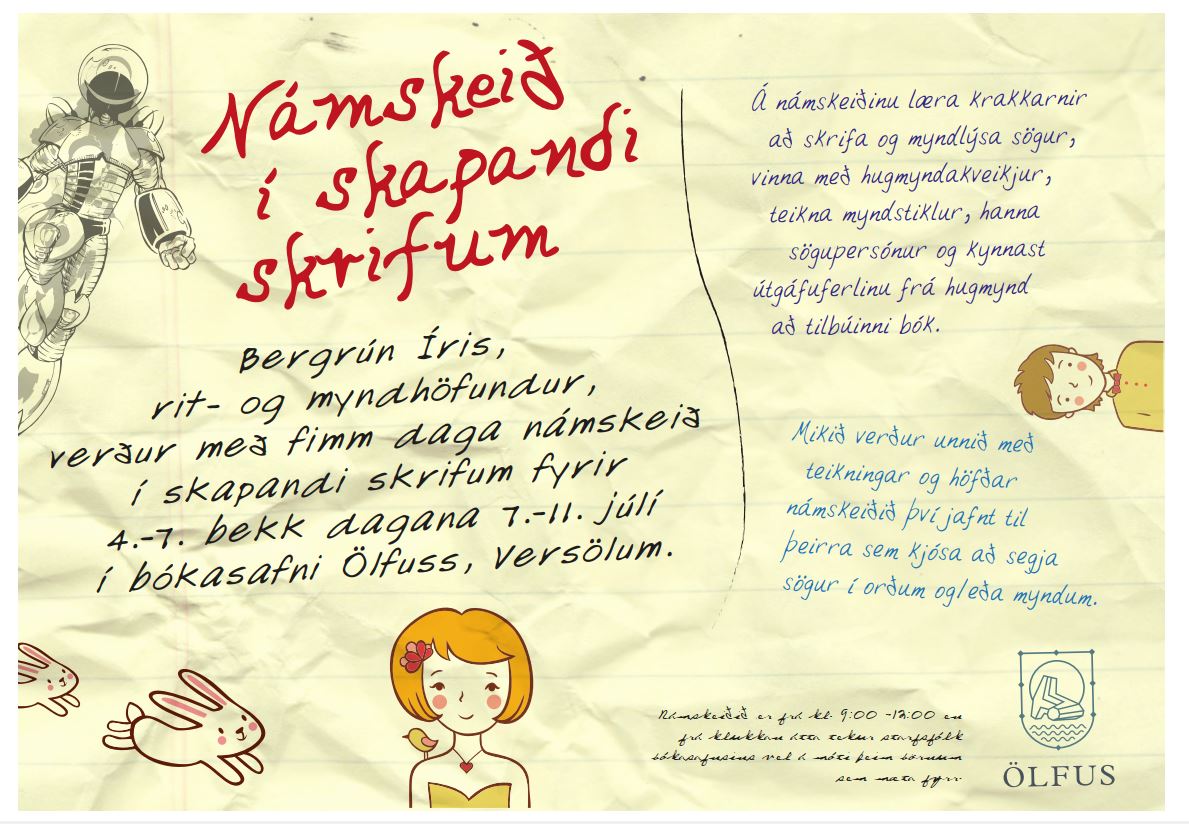 Námskeið
í skapandi
skrifum
Bergrún Íris,
rit- og myndhöfundur,
verður með fimm daga námskeið
í skapandi skrifum fyrir
4.-7. bekk dagana 7.-11. júlí
í bókasafni Ölfuss, Versölum.
Á námskeiðinu læra krakkarnir
að skrifa og myndlýsa sögur,
vinna með hugmyndakveikjur,
teikna myndstiklur, hanna
sögupersónur og kynnast
útgáfuferlinu frá hugmynd
að tilbúinni bók.
Mikið verður unnið með
teikningar og höfðar
námskeiðið því jafnt til
þeirra sem kjósa að segja
sögur í orðum og/eða myndum.
Námskeiðið er frá kl. 9:00 -12:00 en
frá klukkan átta tekur starfsfólk
bókasafnsins vel á móti þeim börnum
sem mæta fyrr.
ÖLFUS